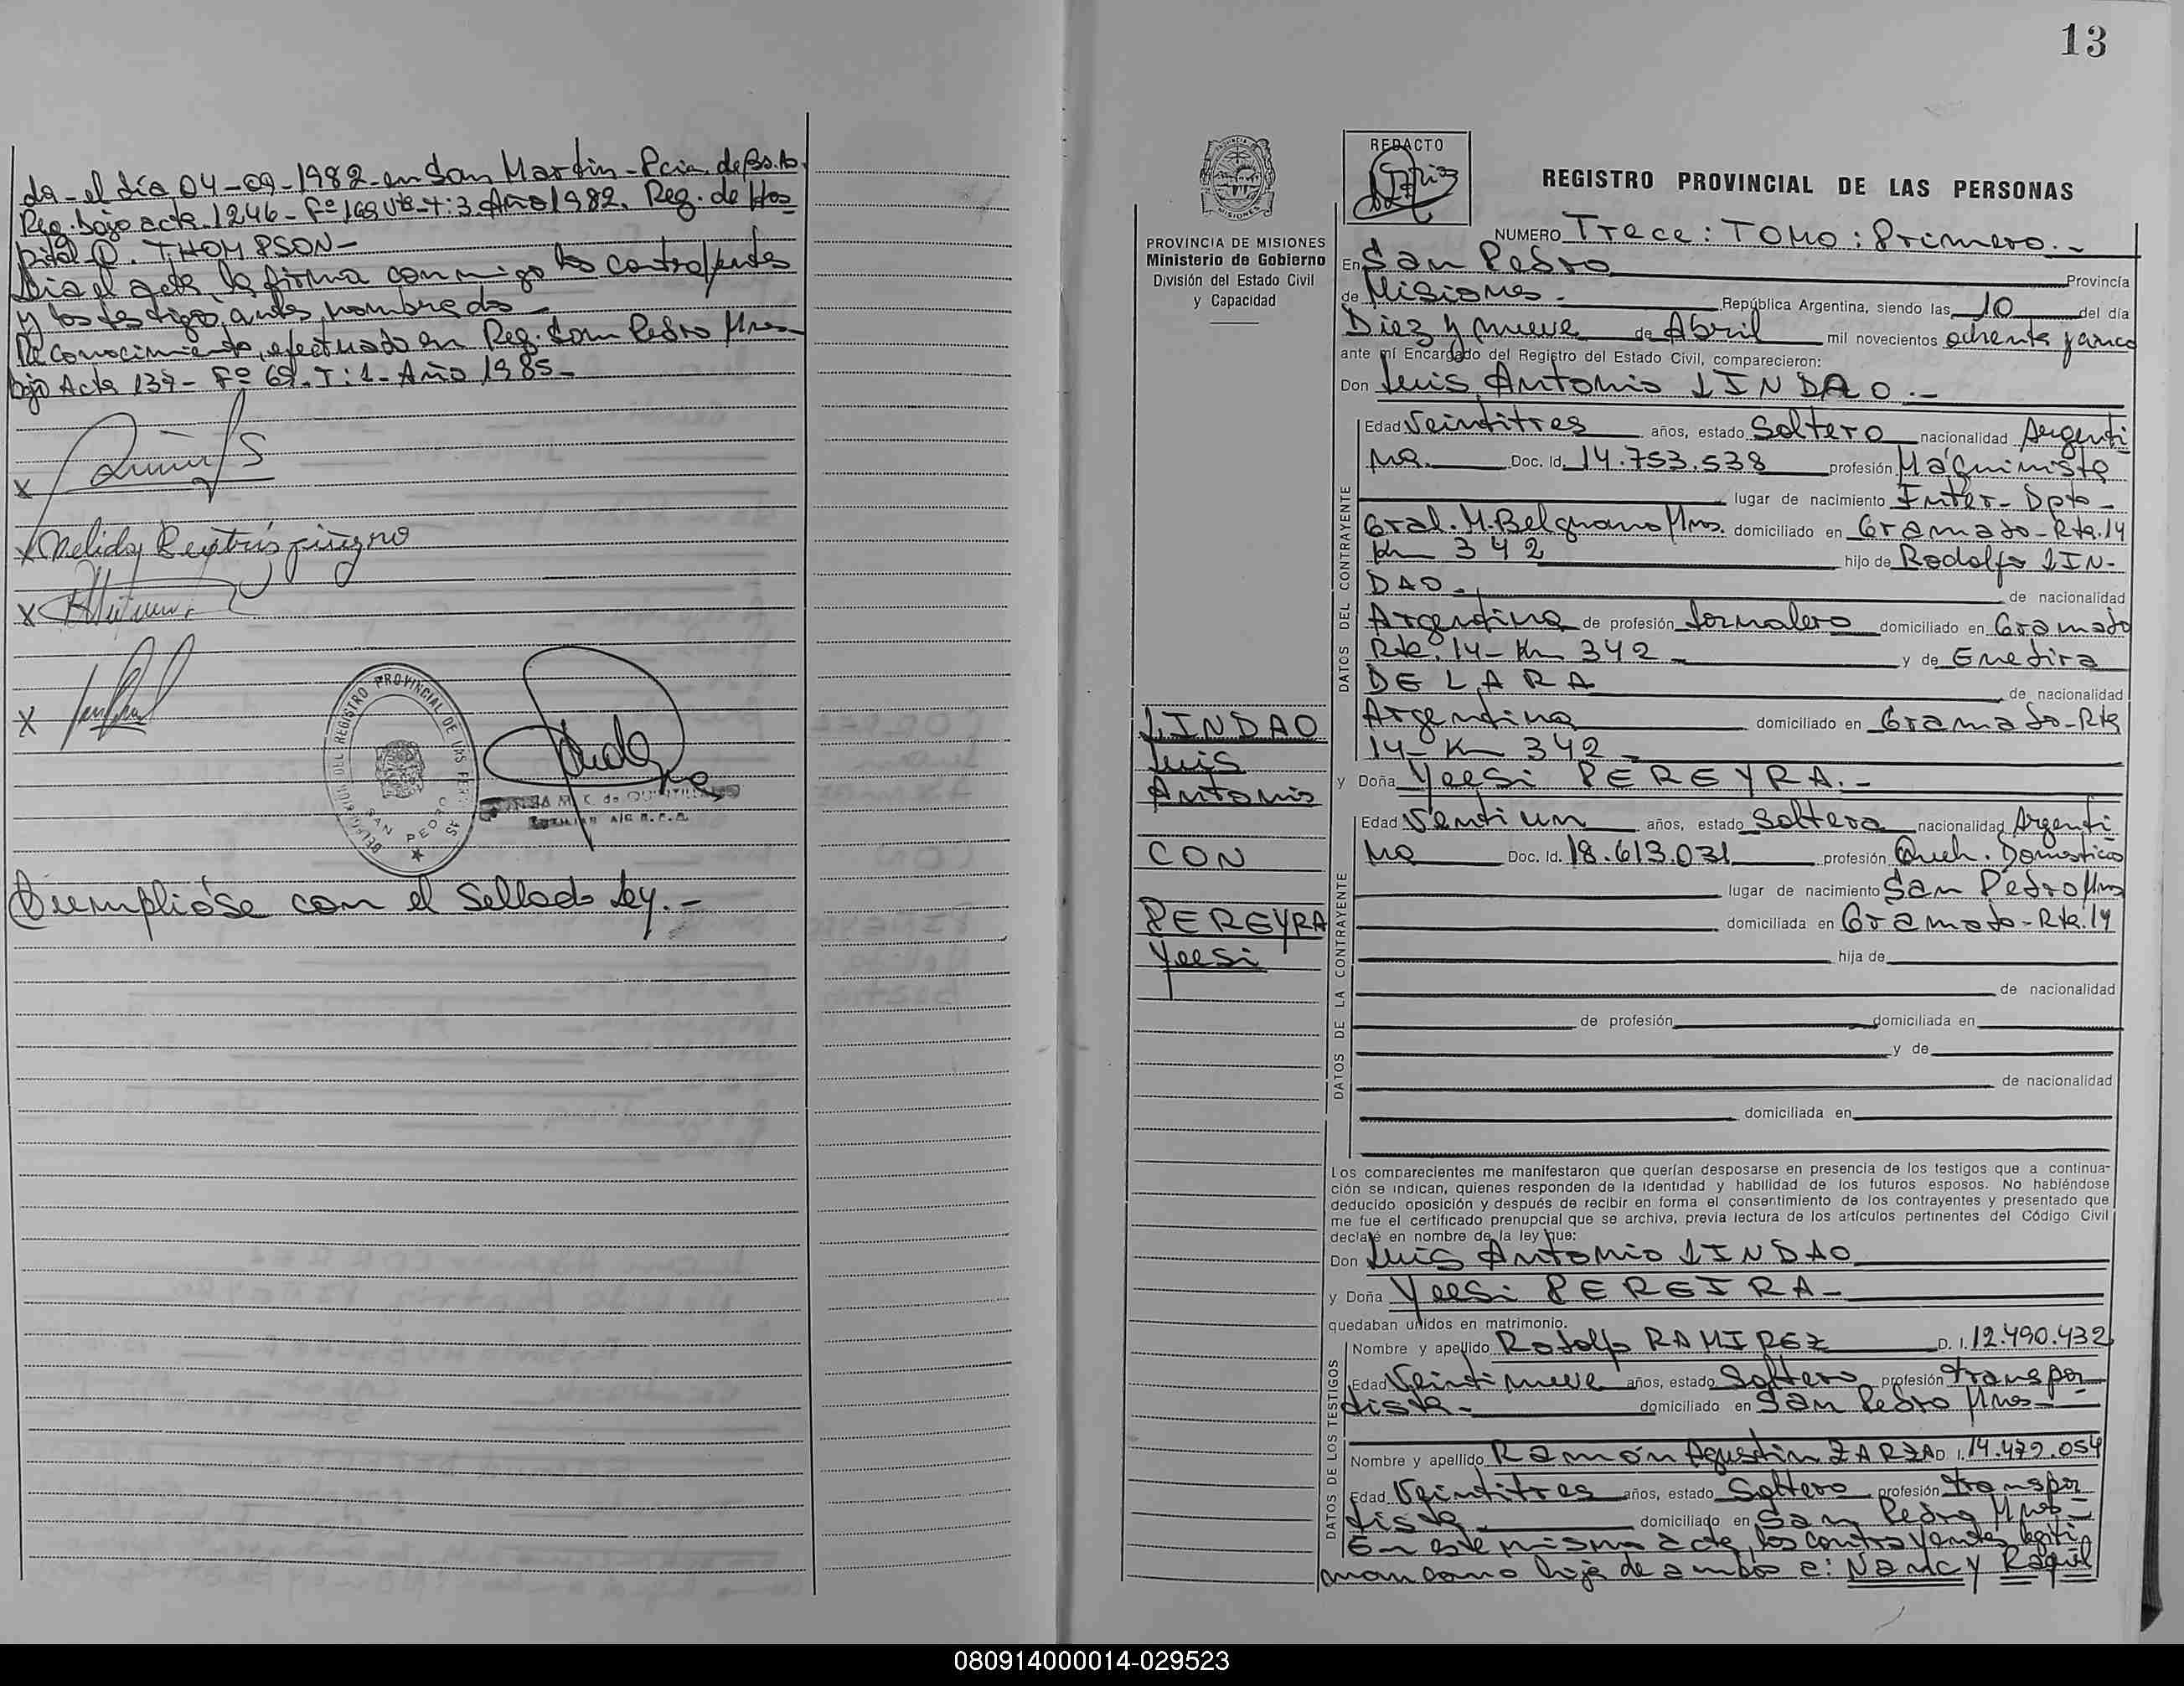 da - el día 04-09-1982 - en San Martin - Pcia. de Bs. As.
Reg. bajo acta. 1246 - Fº 169 Vta - T: 3 Año 1982. Reg. de Hos-
pital D. THOMPSON -
Leída el acta la firma conmigo los contrayentes
y los testigos antes nombrado -
Reconocimiento, efectuado en Reg. San Pedro Mnes -
bajo Acta 137 - Fº 69. T: 1 - Año 1985 -
x
x Nelida Beatris
x
x
PROVINCIAL DE LAS PERSONAS
SAN PEDRO
Cumplióse con el Sellado Ley. -
13
PROVINCIA DE MISIONES
Ministerio de Gobierno
División del Estado Civil
y Capacidad
LINDAO
Luis
Antonio
CON
PEREYRA
Yeesi
REDACTO
REGISTRO PROVINCIAL DE LAS PERSONAS
NUMERO Trece: TOMO: Primero. -
En San Pedro Provincia
de Misiones - República Argentina, siendo las 10 del día
Diez y nueve de Abril mil novecientos ochenta y cinco
ante mí Encargado del Registro del Estado Civil, comparecieron:
Don Luis Antonio LINDAO. -
DATOS DEL CONTRAYENTE
Edad Veintitres años, estado Soltero nacionalidad Argenti
na. Doc. Id. 14.753.538 profesión Maquinista
lugar de nacimiento Inter - Dpto -
Gral. M. Belgrano Mnes. domiciliado en Gramado - Rta. 14
Km 342 hijo de Rodolfo LIN-
DAO. de nacionalidad
Argentina de profesión Jornalero domiciliado en Gramado
Rta. 14 - Km 342 - y de Enedira
DE LARA de nacionalidad
Argentina domiciliado en Gramado - Rta
14 - Km 342 -
y Doña Yeesi PEREYRA. -
DATOS DE LA CONTRAYENTE
Edad Ventiun años, estado Soltera nacionalidad Argenti
na Doc. Id. 18.613.031 profesión Queh. Domesticos
lugar de nacimiento San Pedro Mnes
domiciliada en Gramado - Rta. 14
hija de
de nacionalidad
de profesión domiciliada en
y de
de nacionalidad
domiciliada en
Los comparecientes me manifestaron que querían desposarse en presencia de los testigos que a continua-
ción se indican, quienes responden de la identidad y habilidad de los futuros esposos. No habiéndose
deducido oposición y después de recibir en forma el consentimiento de los contrayentes y presentado que
me fue el certificado prenupcial que se archiva, previa lectura de los artículos pertinentes del Código Civil
declaré en nombre de la ley que:
Don Luis Antonio LINDAO
y Doña Yeesi PEREIRA -
quedaban unidos en matrimonio.
DATOS DE LOS TESTIGOS
Nombre y apellido Rodolfo RAMIREZ D. I. 12.490.432
Edad Veintinueve años, estado Soltero profesión transpor
tista - domiciliado en San Pedro Mnes -
Nombre y apellido Ramón Agustin ZARZA D. I. 14.479.054
Edad Veintitres años, estado Soltero profesión transpor
tista - domiciliado en San Pedro Mnes -
En este mismo acto, los contrayentes legiti
man como hija de ambos a: Nancy Raquel
080914000014-029523